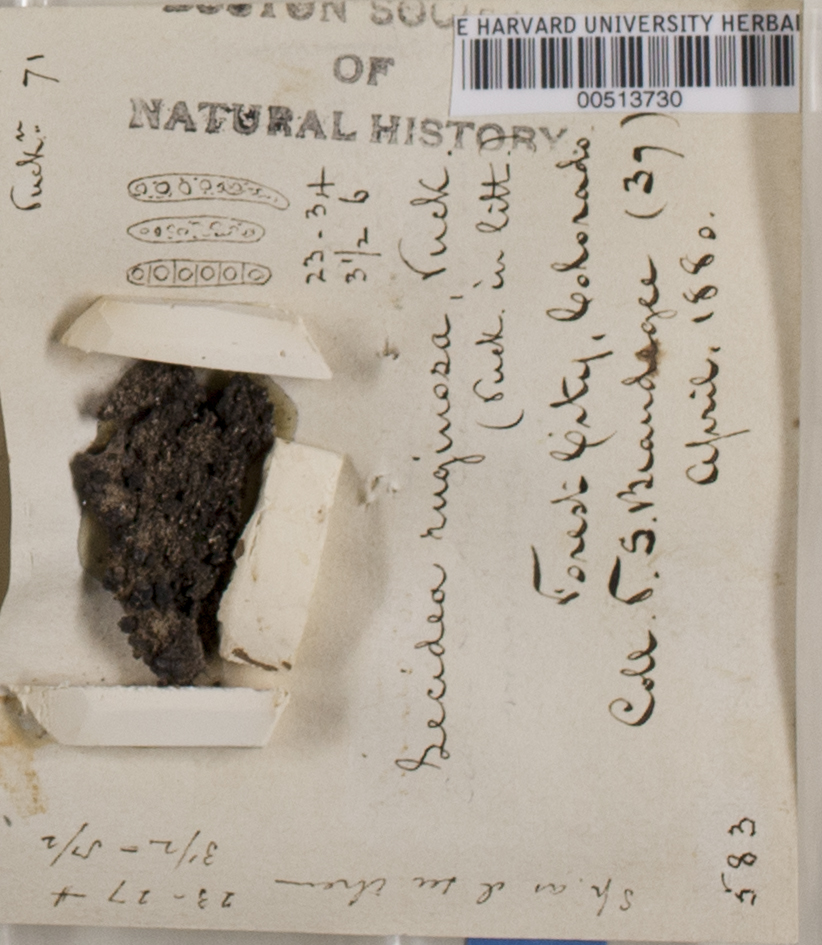 BOSTON SOCI
OF
NATURAL HISTORY.
E HARVARD UNIVERSITY HERBAI
00513730
Tuck. 71
23-34
3 1/2 6
Lecidea ruginosa, Tuck.
(Tuck. in litt.)
Forest City, Colorado
Coll. T. S. Brandegee (39)
April. 1880.
583
Sp. as I see them — 23-27
3 1/2 - 5 1/2